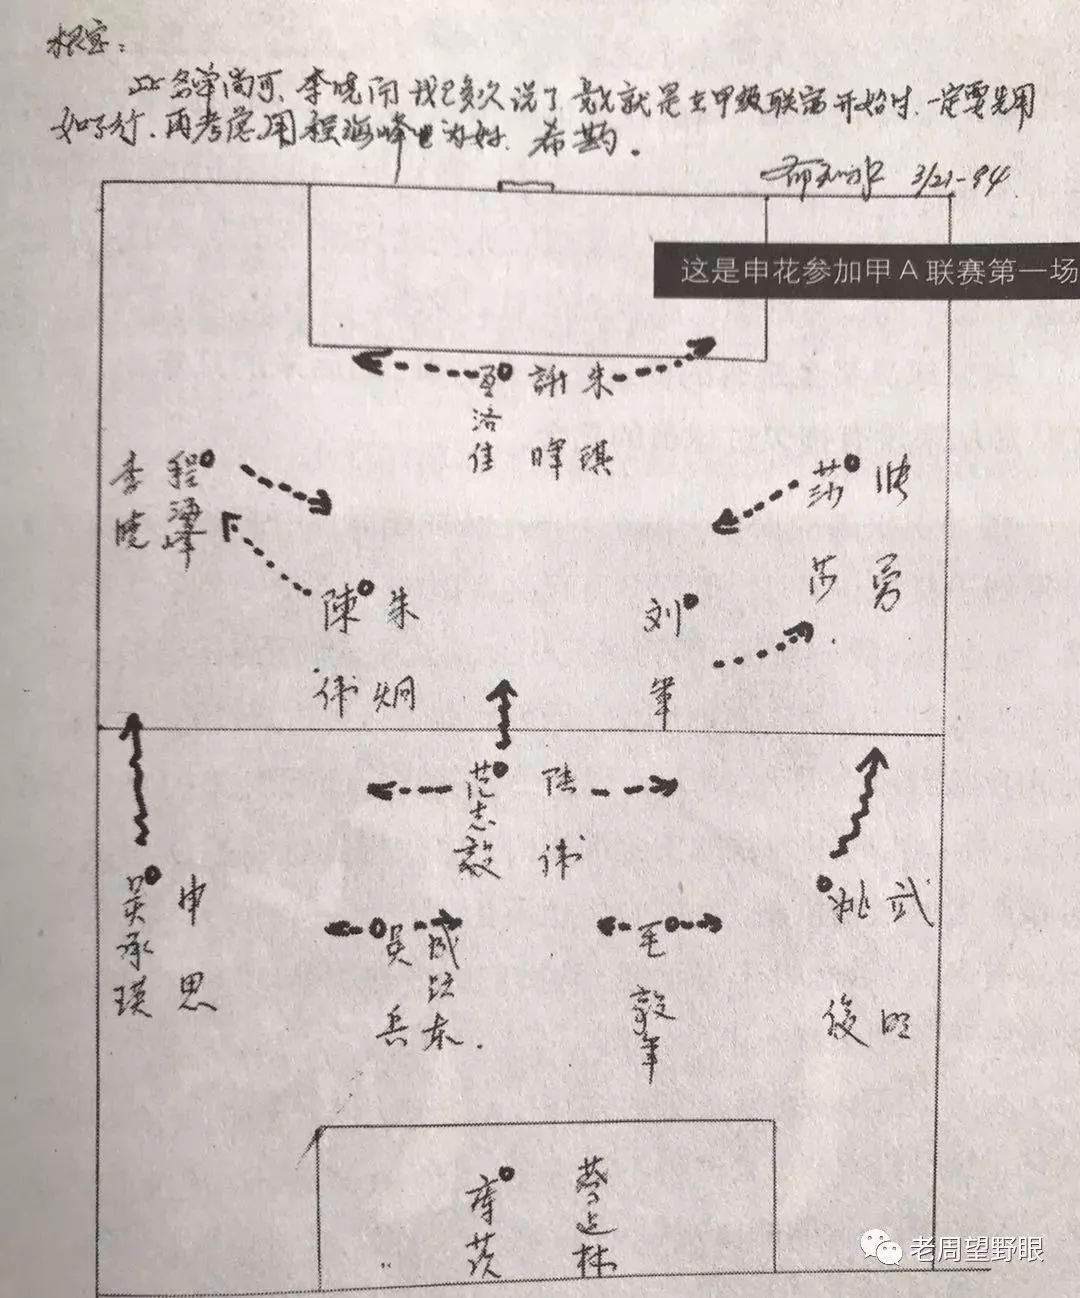 根宝：
此名单尚可、李晓 我已多次说了 就是在甲级联赛开始时、一定要先用
如不行、再考虑用程海峰也为好、希酌。
郁知非 3/21-94
这是申花参加甲A联赛第一场
瓦洛佳
謝晖
朱琪
李晓
程海峰
莎莎
勇
陳伟
朱炯
刘军
范志毅
陆伟
吴承瑛
申思
吴兵
成 东
毛毅军
姚俊
武明
库茨
蔡 林
老周望野眼